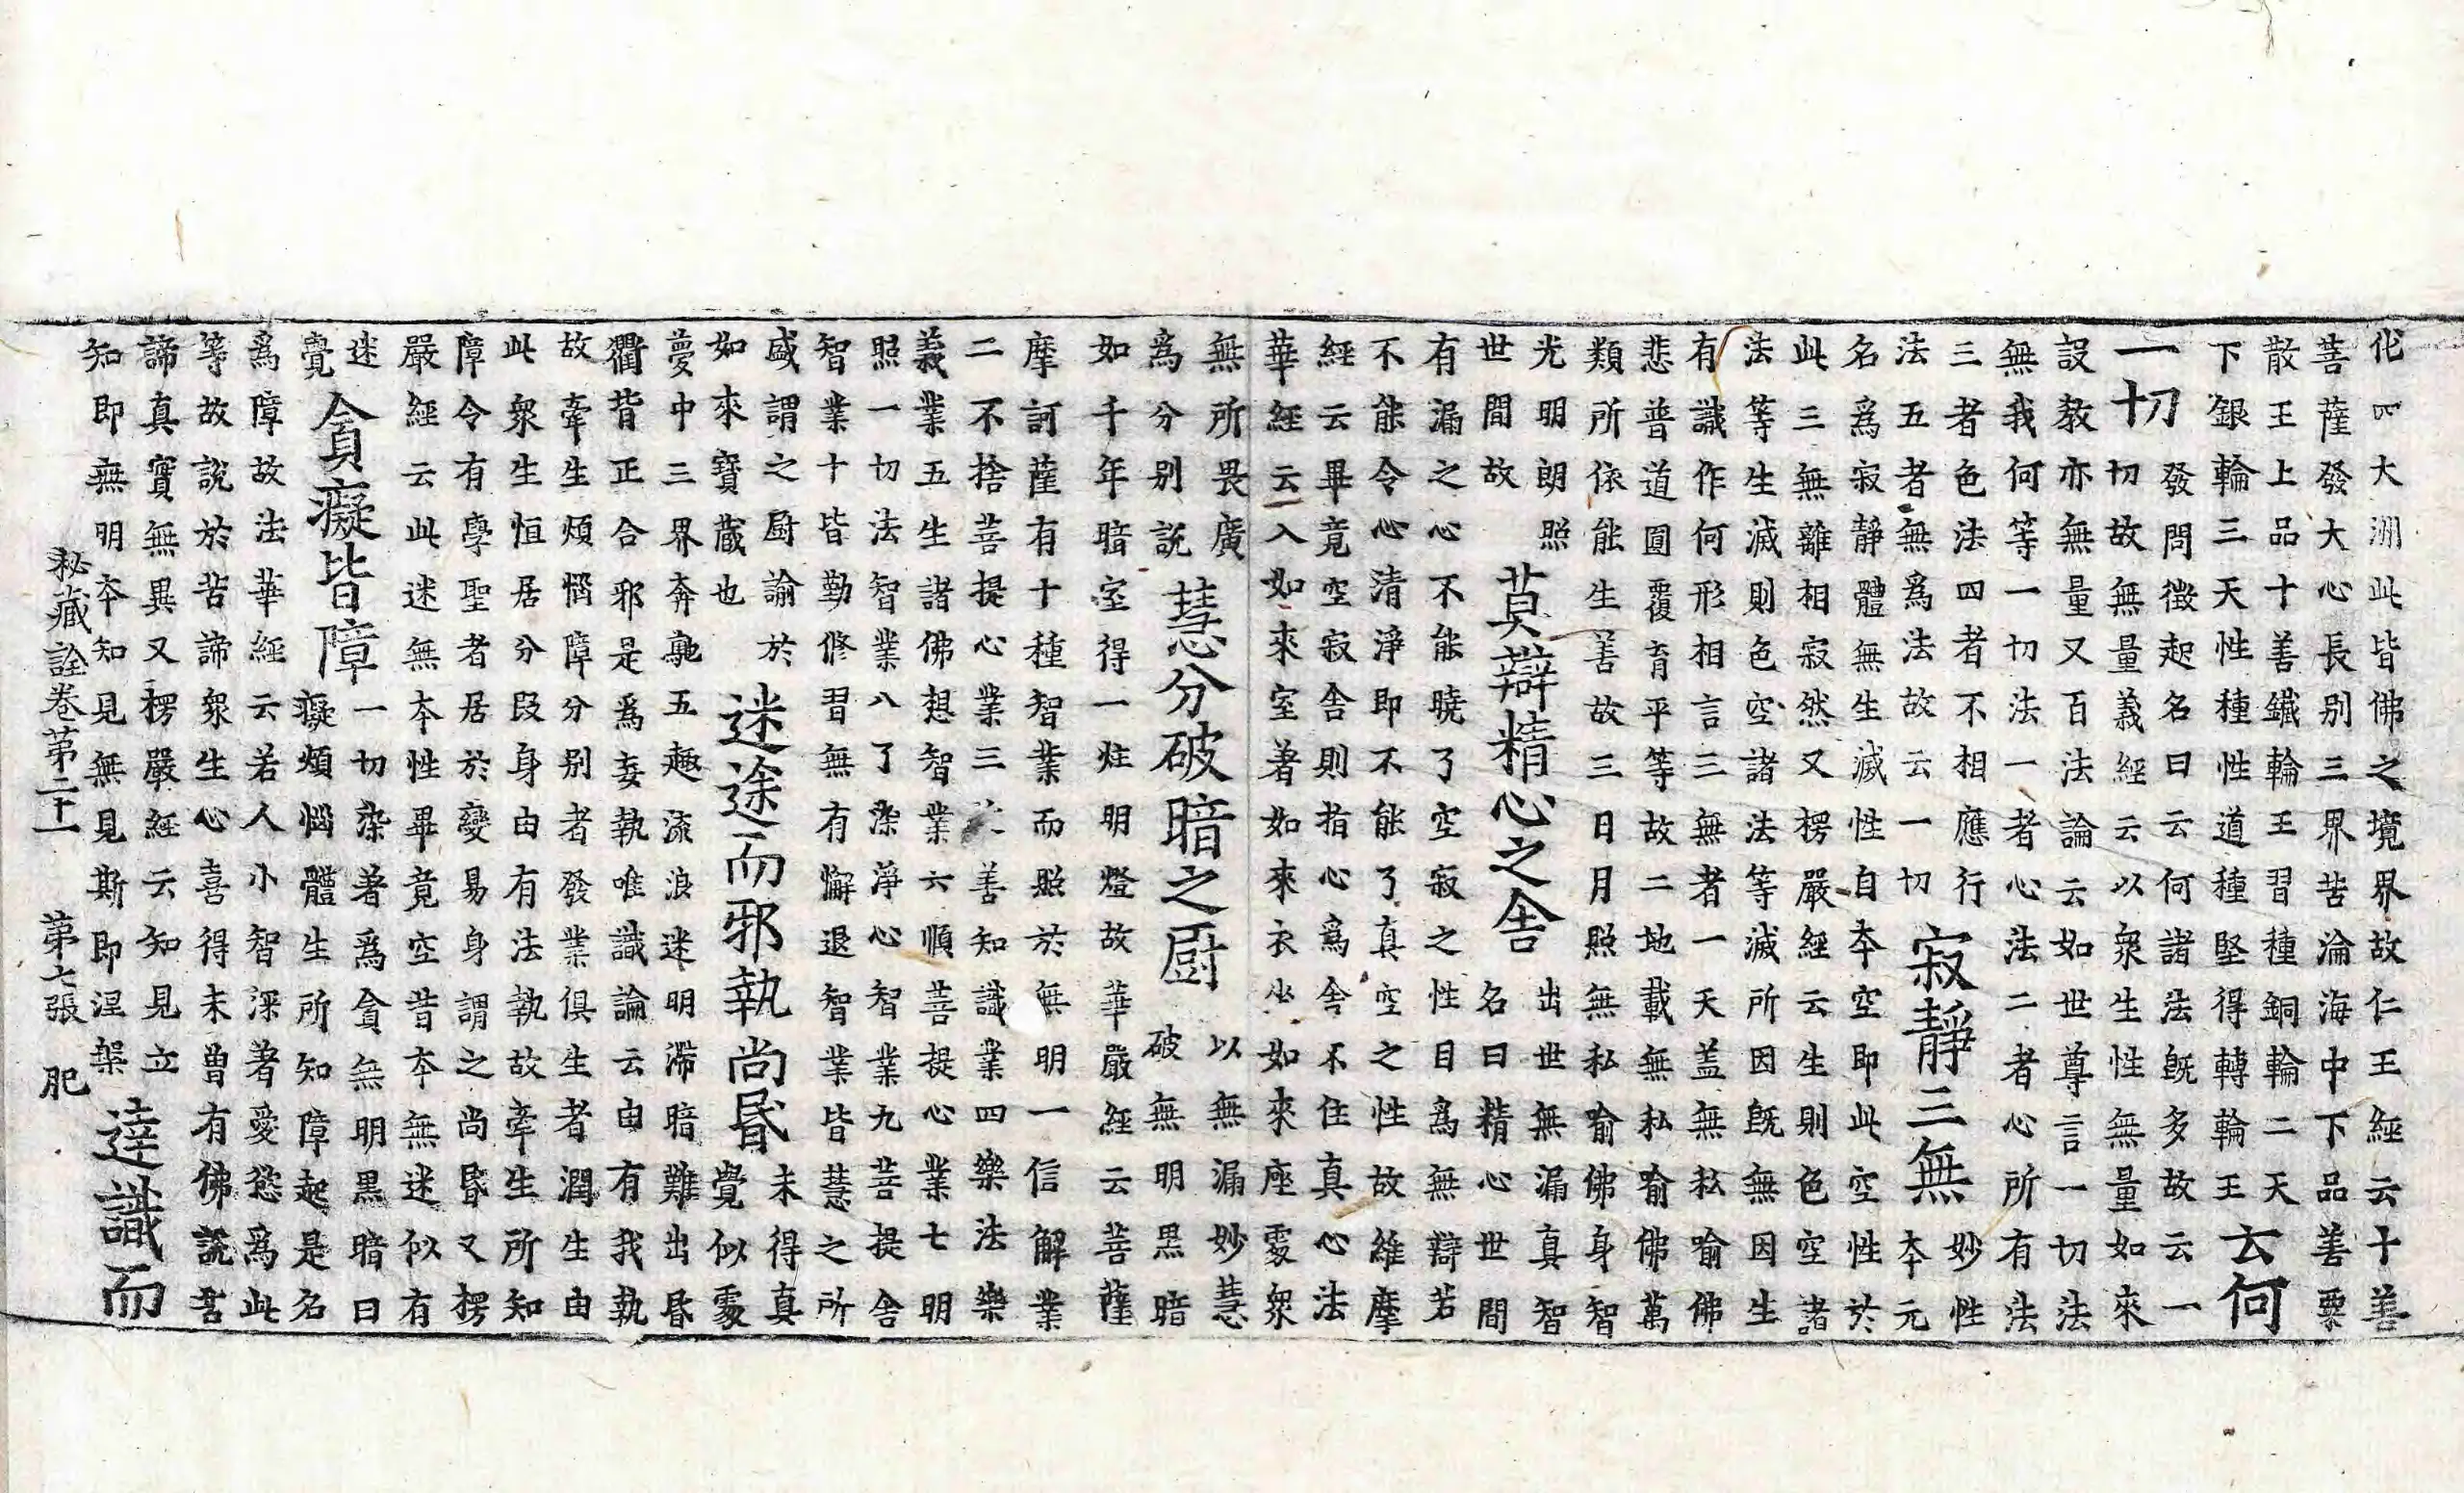 化四大洲此皆佛之境界故仁王經云十善
菩薩發大心長別三界苦淪海中下品善粟
散王上品十善鐵輪王習種銅輪二天
下銀輪三天性種性道種堅得轉輪王
云何
一切
發問徵起名曰云何諸法旣多故云一
切故無量義經云以衆生性無量如來
設教亦無量又百法論云如世尊言一切法
無我何等一切法一者心法二者心所有法
三者色法四者不相應行
法五者無爲法故云一切
寂靜三無
妙性
本元
名爲寂靜體無生滅性自本空即此空性於
此三無離相寂然又楞嚴經云生則色空諸
法等生滅則色空諸法等滅所因旣無因生
有識作何形相言三無者一天盖無私喻佛
悲普道圓覆育平等故二地載無私喻佛萬
類所依能生善故三日月照無私喻佛身智
光明朗照
世間故
莫辯精心之舍
出世無漏真智
名曰精心世間
有漏之心不能曉了空寂之性目爲無辯若
不能令心清淨即不能了真空之性故維摩
經云畢竟空寂舍則指心爲舍不住真心法
華經云入如來室著如來衣坐如來座處衆
無所畏廣
爲分別說
慧分破暗之厨
以無漏妙慧
破無明黑暗
如千年暗室得一炷明燈故華嚴經云菩薩
摩訶薩有十種智業而照於無明一信解業
二不捨菩提心業三善知識業四樂法樂
義業五生諸佛想智業六順菩提心業七明
照一切法智業八了染淨心智業九菩提舍
智業十皆勤修習無有懈退智業皆慧之所
盛謂之厨諭於
如來寳蔵也
迷途而邪執尚昬
未得真
覺似處
夢中三界奔馳五趣流浪迷明滯暗難出昬
衢背正合邪是爲妄執唯識論云由有我執
故牽生煩惱障分別者發業俱生者潤生由
此衆生恒居分段身由有法執故牽生所知
障令有學聖者居於變易身謂之尚昬又楞
嚴經云此迷無本性畢竟空昔本無迷似有
迷
覺
貪癡皆障
一切染著爲貪無明黑暗曰
癡煩惱體生所知障起是名
爲障故法華經云若人小智深著愛慾爲此
等故說於苦諦衆生心喜得未曾有佛說苦
諦真實無異又楞嚴經云知見立
知即無明本知見無見斯即涅槃
達識而
秘藏詮卷第二十一　第七張　肥